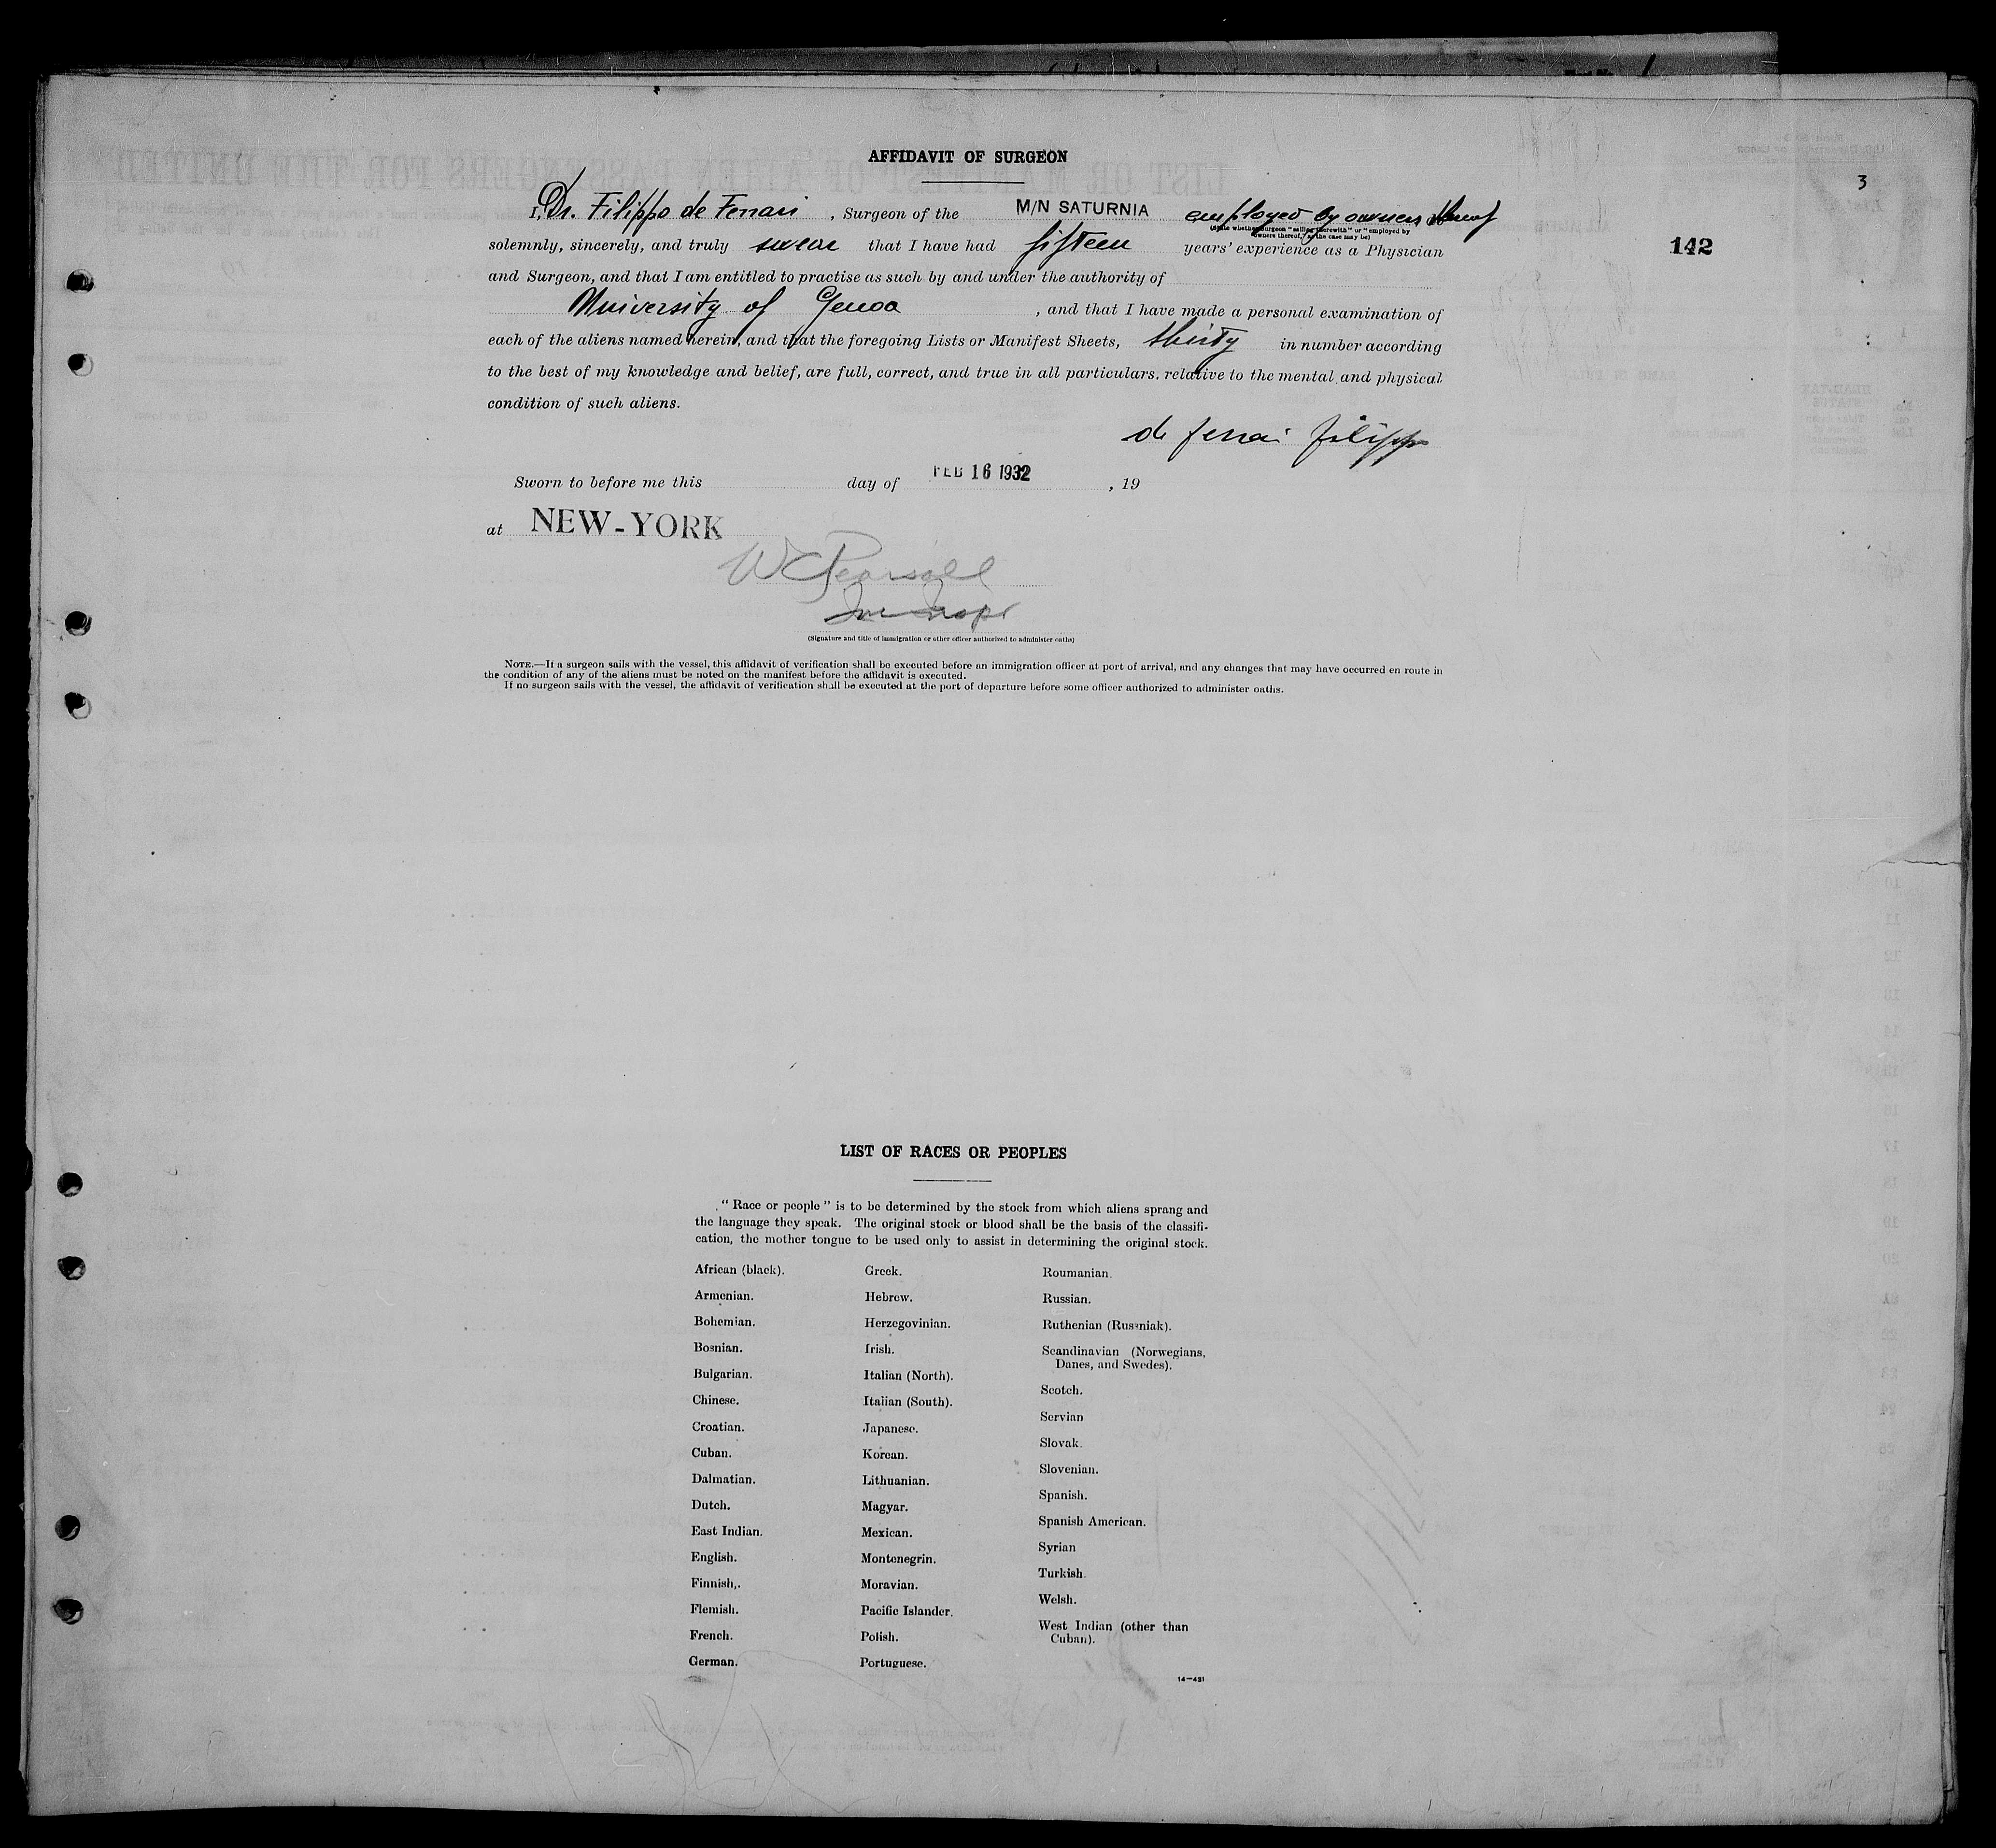 AFFIDAVIT OF SURGEON
3
I, Dr. Filippo de Ferrari, Surgeon of the M/N SATURNIA employed by owners thereof
(State whether surgeon "sailing therewith" or "employed by
owners thereof," as the case may be)
solemnly, sincerely, and truly swear that I have had fifteen years' experience as a Physician
142
and Surgeon, and that I am entitled to practise as such by and under the authority of
University of Genoa, and that I have made a personal examination of
each of the aliens named herein, and that the foregoing Lists or Manifest Sheets, thirty in number according
to the best of my knowledge and belief, are full, correct, and true in all particulars, relative to the mental and physical
condition of such aliens.
de Ferrari Filippo
Sworn to before me this day of FEB 16 1932, 19
at NEW-YORK
W C Pearsall
(Signature and title of immigration or other officer authorized to administer oaths)
NOTE.—If a surgeon sails with the vessel, this affidavit of verification shall be executed before an immigration officer at port of arrival, and any changes that may have occurred en route in
the condition of any of the aliens must be noted on the manifest before the affidavit is executed.
If no surgeon sails with the vessel, the affidavit of verification shall be executed at the port of departure before some officer authorized to administer oaths.
LIST OF RACES OR PEOPLES
"Race or people" is to be determined by the stock from which aliens sprang and
the language they speak. The original stock or blood shall be the basis of the classifi-
cation, the mother tongue to be used only to assist in determining the original stock.
African (black).
Armenian.
Bohemian.
Bosnian.
Bulgarian.
Chinese.
Croatian.
Cuban.
Dalmatian.
Dutch.
East Indian.
English.
Finnish.
Flemish.
French.
German.
Greek.
Hebrew.
Herzegovinian.
Irish.
Italian (North).
Italian (South).
Japanese.
Korean.
Lithuanian.
Magyar.
Mexican.
Montenegrin.
Moravian.
Pacific Islander.
Polish.
Portuguese.
Roumanian.
Russian.
Ruthenian (Russniak).
Scandinavian (Norwegians,
Danes, and Swedes).
Scotch.
Servian
Slovak.
Slovenian.
Spanish.
Spanish American.
Syrian
Turkish.
Welsh.
West Indian (other than
Cuban).
14—431